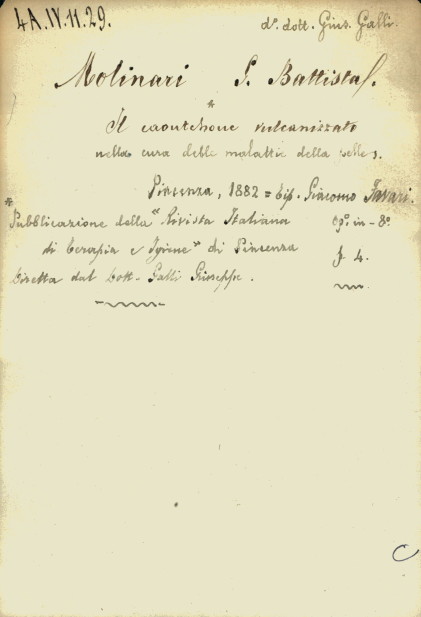 4A.IV.11.29.
d.º dott. Gius. Galli.
Molinari G. Battista.
*
Il caoutchouc vulcanizzato
nella cura delle malattie della pelle.
Piacenza, 1882 = Tip. Giacomo Tavari.
* Pubblicazione della "Rivista Italiana op.º in-8.º
di Terapia e Igiene" di Piacenza f. 4.
diretta dal Dott. Galli Giuseppe.
C